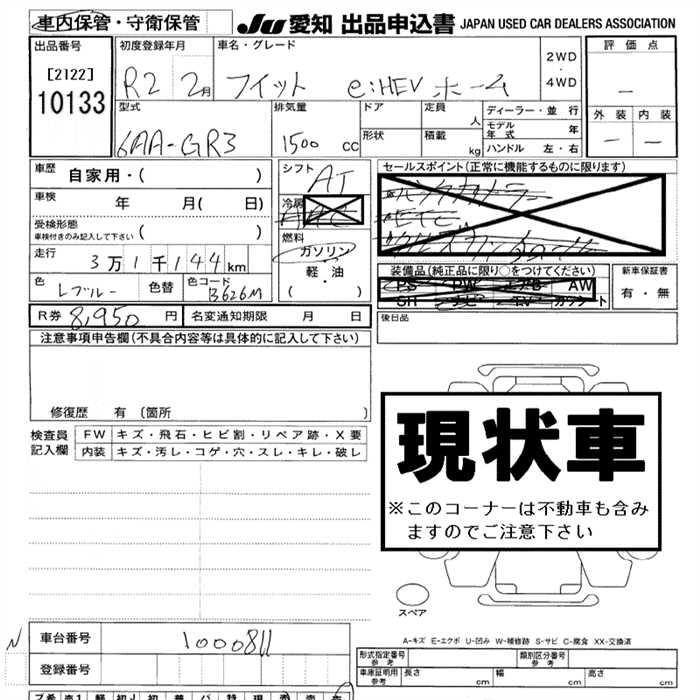 車内保管・守衛保管 JU 愛知 出品申込書 JAPAN USED CAR DEALERS ASSOCIATION
出品番号 [2122] 10133
初度登録年月 R2 2月
車名・グレード フィット e:HEV ホーム
2WD・4WD
評価点 —
外装 内装
— —
型式 6AA-GR3
排気量 1500 cc
ドア 定員 人
形状 積載 kg
ディーラー・並行
モデル年式 年
ハンドル 左・右
車歴 自家用・( )
車検 年 月( 日)
受検形態 車検付きのみ記入して下さい ( )
走行 3万1千144km
色 レブルー 色替 色コード B626M
シフト AT
冷房
燃料 ガソリン・軽油・( )
セールスポイント(正常に機能するものに限ります)
装備品(純正品に限り○をつけてください)
PS PW エアB AW
SH ナビ TV
新車保証書 有・無
R券 8,950円 名変通知期限 月 日
後日品
注意事項申告欄(不具合内容等は具体的に記入して下さい)
修復歴 有 (箇所 )
検査員記入欄
FW キズ・飛石・ヒビ割・リペア跡・X要
内装 キズ・汚レ・コゲ・穴・スレ・キレ・破レ
現状車
※このコーナーは不動車も含み
ますのでご注意下さい
スペア
A-キズ E-エクボ U-凹み W-補修跡 S-サビ C-腐食 XX-交換済
N 車台番号 1000811
登録番号
形式指定番号 参考 類別区分番号 参考
車庫証明用 参考 長さ cm 幅 cm 高さ cm